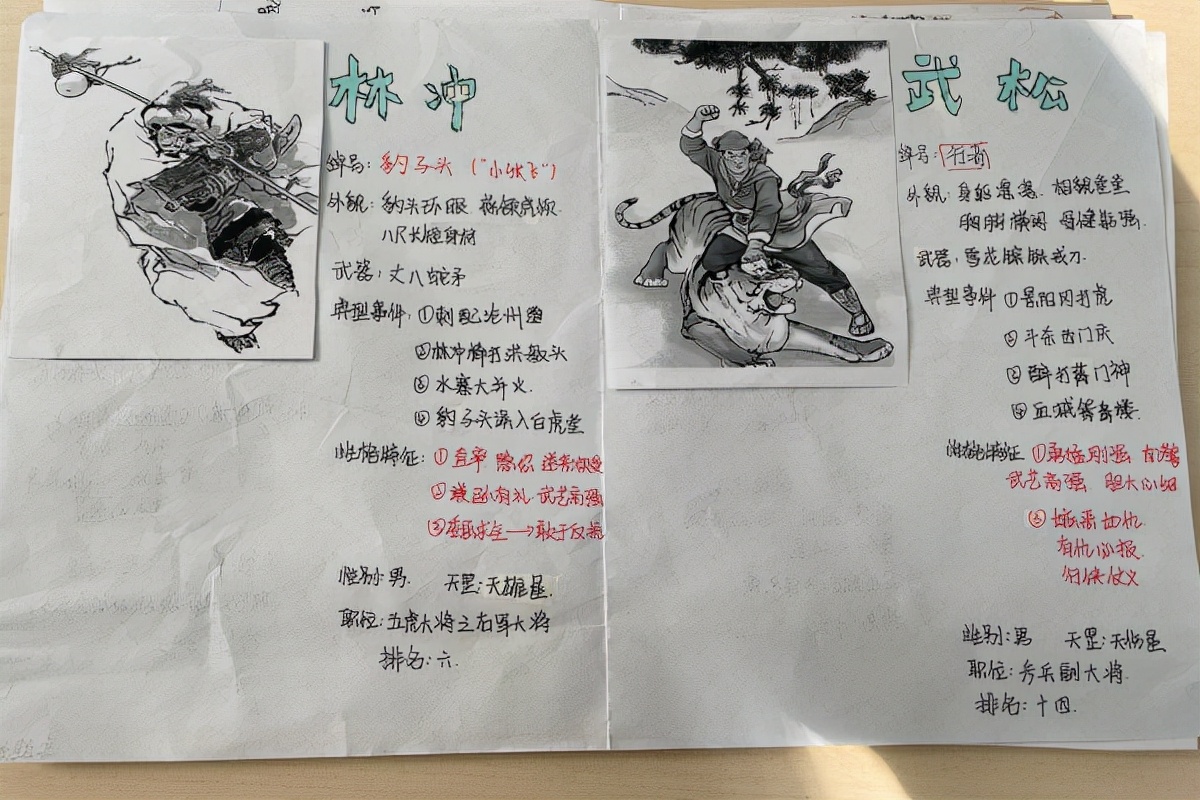 林冲
绰号：豹子头（"小张飞"）
外貌：豹头环眼 燕颔虎须
八尺长短身材
武器：丈八蛇矛
典型事件：①刺配沧州道
②林冲棒打洪教头
③水寨大并火
④豹子头误入白虎堂
性格特征：①直率
②武艺高强
③委曲求全→敢于反抗
性别：男 天罡：天雄星
职位：五虎大将之右军大将
排名：六
武松
绰号：行者
外貌：身躯凛凛 相貌堂堂
胸脯横阔
武器：雪花镔铁戒刀
典型事件①景阳冈打虎
③斗杀西门庆
②醉打蒋门神
④血溅鸳鸯楼
性格特征①勇猛刚强
武艺高强 胆大心细
③嫉恶如仇
有仇必报
行侠仗义
性别：男 天罡：天伤星
职位：步兵副大将
排名：十四